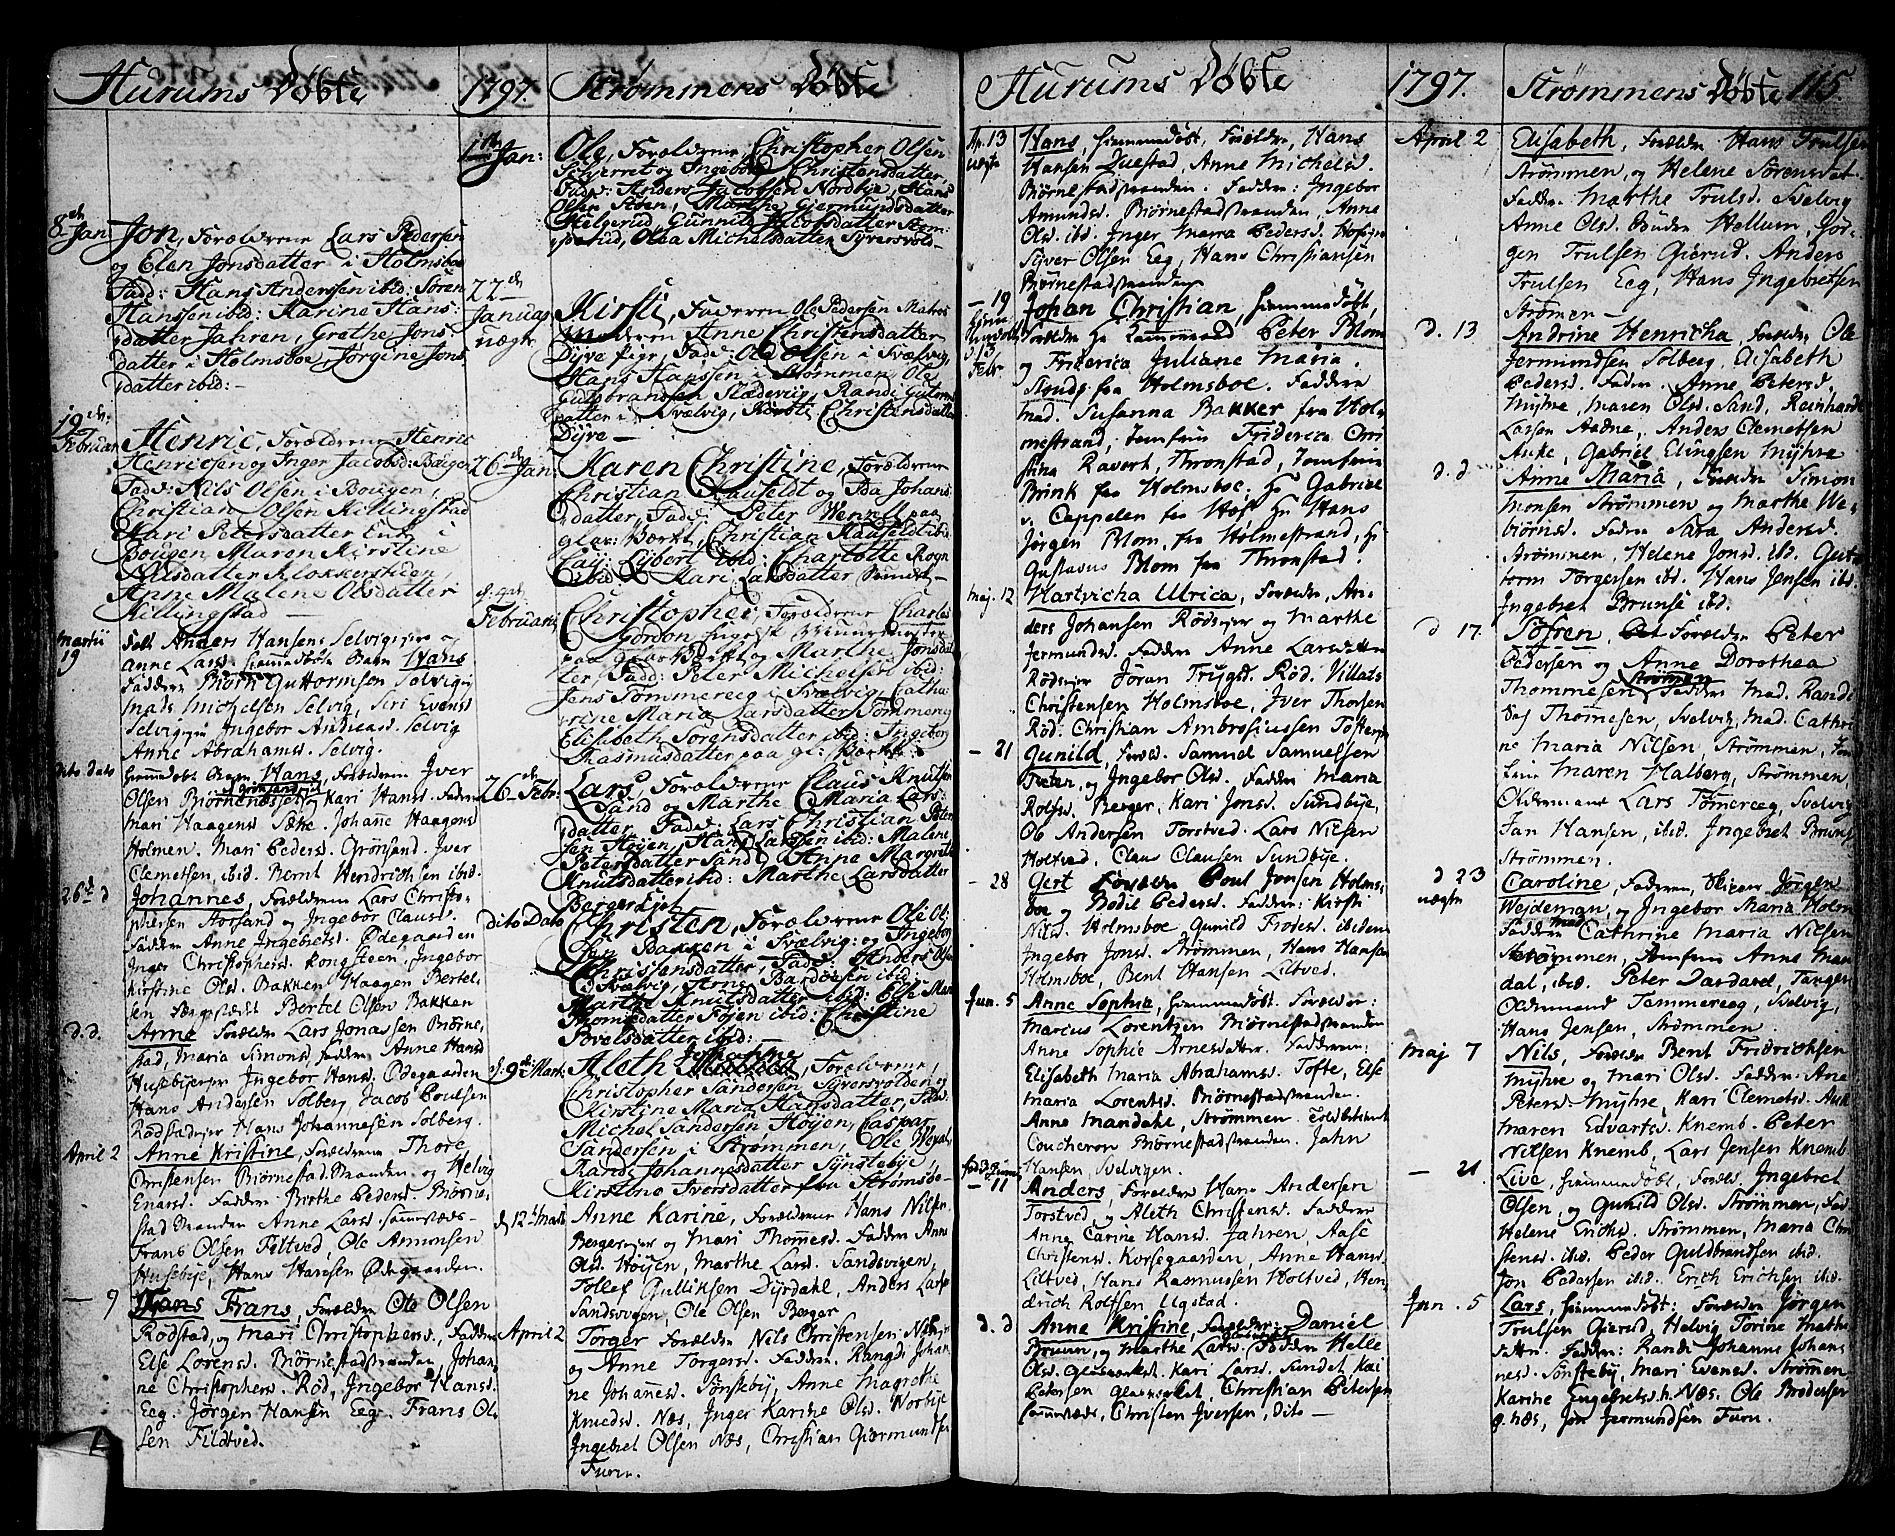 Hurums Döbte
8de Jan
Jon, Forældrene Lars Pedersen
og Elen Jonsdatter i Holmsboe
Fadd: Hans Anderssen ibid: Søren
Hanssen ibid: Karine Hans:
datter Jahren, Grethe Jons
datter i Holmsboe, Jørgine Jons
datter ibid:
19de
Februar
Henric, Forældrene Henric
Henricsen og Inger Jacobsd: Bougen
Fadd: Nils Olsen i Bougen,
Christian Olsen Killingstad
Kari Petersdatter Enke i
Bougen Maren Kirstine
Nilsdatter Klokkerstuen,
Anne Malene Olsdatter
Killingstad
Martii
19
Anders Hansens Selvigs og
Anne Lars hiemmedöbte Barn Hans
Faddere Biörn Guttormsen Solvig
Mads Michelsen Selvig, Siri Evensd
Selvig Ingebor Andreasd Selvig
Anne Abrahamsd. Selvig.
Dito Dato
Barn, Hans, Forældrene Iver
Olsen Biörnenæsset og Kari Hansd. Faddere
Mari Haagens Sætre. Johanne Haagens
Holmen. Mari Pedersd. Grönsand. Iver
Clemetsen, ibid. Bernt Hendrichsen ibid.
26 d
Johannes, Forældrene Lars Christo
phersen Aorsand og Ingebor Clausd.
Faddere Anne Ingebretsd. Ødegaarden
Inger Christophersd. Kongsteen, Ingebor
Kirstine Olsd. Bakken Haagen Bertel,
sen Bertel Olsen Bakken
d. d.
Anne Forældre Lars Jonassen Biörne,
stad, Maria Simonsd faddere Anne Hansd
Husebyeejer Ingebor Hansd. Ødegaarden
Hans Andersen Solberg Jacob Poulsen
Rödstadejer Hans Johannesen Solberg.
April 2
Anne Kristine, Forældrene Thore
Christensen Biörnestad Stranden og Helvig
Enersd. Faddere Birthe Pedersd. Biörne,
stad Stranden Anne Larsd sammesteds
Frans Olsen Filtved, Ole Amonsen
Husebye, Hans Hansen Ødegaarden.
— 9
Hans Frans, Forældre Ole Olsen
Rödstad, og Mari Christophersd., Faddere
Else Lorensd. Biörnestadstranden, Johan,
ne Christophersd. Röd, Ingebor Hansd.
Eeg. Jørgen Hansen Eeg. Frans Ol
sen Fildtved.
1797. Strømmens Döbte
1ste Jan:
Ole, Forældrene, Christopher Olsen
Schverret og Ingebor Christensdatter,
Fadd: Anders Jacobsen Nordbye, Hans
Olsen Steen, Marthe Giermundsdatter
Helgerud, Gunnild Jacobsdatter
Olea Michelsdatter Syversvold
22de
Januar
Kirsti, Faderen Ole Pedersen Matros
Moderen Anne Christensdatter
Dyve Pige, Fadd: Ole Olsen i Svælvig,
Hans Hanssen i Strømmen, Ole
Gulbrandsen Klædevig, Randi Guttorms
datter i Svælvig, Christensdatter
Dyve
26de Jan:
Karen Christine, Forældrene
Christian Kaufeldt og Ida Johans
datter, Fadd: Peter Wennel paa
glas: Værket, Christian Kaufeldt ibid:
Caij: Lybert ibid: Charlotte Rogn
ibid & Kari Larsdatter Brundt
Februarii
Christopher, Forældrene Charles
Gordon Engelsk
paa glas Værket og Marthe Jons
datter Fadd: Peter Michelsen ibid:
Jens Tömmereeg i Svælvig, Catha
rine Maria Larsdatter Tömmereeg
Elisabeth Sørensdatter ibid: Ingebor
Rasmusdatter paa gl: Værket.
26de Febr:
Lars, Forældrene Claus Knutsen
Sand og Marthe Maria Lars:
datter, Fadd: Lars Christian Peter
sen Höyen, Hans Larssen ibid: Malene
Petersdatter Sand, Anne Margrete
Knutsdatter ibid: Marthe Larsdatter
Bergerdist
Dito Dato
Christen, Forældrene Ole Ol
sen Bakken i Svælvig: og Ingebor
Christensdatter, Fadd: Anders Olsen
i Svælvig, Arne Bardöesen ibid:
Marthe Knutsdatter ibid: Else Mari
Thomædatter Föien ibid: Christine
Povelsdatter ibid:
d: 9de Mart
Aleth Johanne, Forældrene,
Christopher Sandersen Syversvolden og
Kirstine Maria Hansdatter, Fadd:
Michel Sandersen Höyen, Caspar
Sandersen i Strømmen, Ole
Randi Johannesdatter Synstebye
Kirstine Iversdatter fra Strømsöe
d 12te Mart
Anne Karine, Forældrene Hans Nilsen
Bergersejer og Mari Thomesd. Faddere Anne
Olsd. Höijen, Marthe Larsd. Sandsvigen,
Tollef Gulliksen Dyrdahl, Anders Larsen
Sandsvigen, Ole Olsen Berger
April 2
Torger Forældre Nils Christensen Norbye
og Anne Torgersd. Faddere: Rangdi Johan
ne Johannesd. Sönsteby, Anne Magrethe
Knudsd. Næs, Inger Karine Olsd. Norbye
Ingebret Olsen Næs, Christian Giermundsen
Furu.
Hurums Döbte
Ap. 13
uægte
Hans, hiemmedöbt, Forældre, Hans
Hansen Questad, Anne Michelsd.
Biörnestadstranden. Faddere: Ingebor
Amundsd. Biörnestadstranden, Anne
Olsd. ibid. Inger Maria Pedersd. Hofsejer
Syver Olsen Eeg, Hans Christiansen
Biörnestadstranden
— 19
d 13
Febr.
Johan Christian, hiemmedöbt,
Forældre Hr Kammerraad Peter Blom
og Frederica Juliane Maria
Stouds fra Holmsboe. Faddere
Mad. Susanna Bakker fra Hol,
mestrand, Jomfrue Friderica Chri
stina Ravert, Thronstad, Jomfrue
Brink fra Holmsboe: Hr Gabriel
v. Cappelen fra Hof Hr Hans
Jørgen Blom, fra Holmestrand, Hr
Gustavus Blom fra Thronstad.
Maj. 12
Hartvicha Ulrica, Forældre, An,
ders Johansen Rödsejer og Marthe
Jermundsd. Faddere Anne Larsdatter
Rödsejer Jöran Trygsd. Röd. Villats
Christensen Holmsboe, Iver Thorsen
Röd. Christian Ambrosiussen Tofte
— 21
Gunild, Foræld. Samuel Samuelsen
og Ingebor Olsd. Faddere Maria
Rolfsd. Berger, Kari Jonsd. Sundbye,
Ole Andersen Torstved. Lars Nilsen
Holtved, Claus Clausen Sundbye.
— 28
Gert Forældre Poul Jensen Holms,
boe og Bodil Pedersd. Faddere: Kirsti
Nilsd. Holmsboe Gunild Frodesd. ibidem
Ingebor Jonsd. Strømmen, Hans Hansen
Holmsboe, Bent Hansen Liltved.
Jun. 5
Anne Sophia, hiemmedöbt. Forældre:
Marcus Lorentzen Biörnestadstranden
Anne Sophie Arnesdatter. Faddere:
Elisabeth Maria Abrahamsd. Tofte, Else
Maria Lorentsd. Biörnestadstranden.
Anne Mandahl, Strømmen.
Coucheron Biörnestadstranden. Jahn
Hansen, Svelvigen.
— 11
Anders, Forældre Hans Andersen
Torstved, og Aleth Christensd. Faddere
Anne Carine Hansd. Jahren, Aase
Christensd. Korsegaarden, Anne Hansd.
Liltved, Hans Rasmussen Holtved, Hen,
drich Rolfsen Ulgstad.
d. d
Anne Kristine, Forældre: Daniel
Bruun, og Marthe Larsd. Faddere Helle
Olsd. Glasværket. Kari Larsd. Sundet, Kai
Pedersen Glasværket, Christian Petersen
sammesteds, Christen Iversen, dito —
1797. Strømmens Döbte 115.
April 2
Elisabeth, Forældre Hans Trulsen
Strømmen, og Helene Sörensdat.
Faddere Marthe Trulsd. Svelvig
Anne Olsd. Hellum, Jör,
gen Trulsen Gierud. Anders
Trulsen Eeg, Hans Ingebretsen
Strömen —
d. 13
Andrine Henricha, Forældre Ole
Jermundsen Solberg, Elisabeth
Pedersd. Faddere. Anne Petersd.
Myhre, Maren Olsd. Sand, Reinhardt
Larsen Aadne, Anders Clemetsen
Auke, Gabriel Elingsen Myhre
d. d.
Anne Maria, Forældre Simon
Monsen Strømmen, og Marthe We,
biörnsd. Faddere Sara Andersd.
Strømmen, Helene Jonsd. ibid. Gut,
torm Torgersen ibid. Hans Jensen ibid.
Ingebret Brunse ibid.
d 17.
Söfren, Forældre Peter
Pedersen og Anne Dorothea
Thommesen Strømmen Faddere Mad. Randi
Thomesen, Svelvig, Mad. Cathri
ne Maria Nilsen, Strømmen, Jom
frue Maren Halberg, Strømmen,
Oldermand Lars Tömereeg, Svelvig
Jan Hansen, ibid. Ingebret Bruns
Strømmen.
d 23
uægte
Caroline, Faderen, Skipper Jörgen
Wejdeman, og Ingebor Maria Holm
Faddere Mad Cathrine Maria Nilsen
Strømmen, Jomfrue Anne Man
dal, ibid. Peter Dardavel, Tangen
Oldermand Tammereeg, Svelvig,
Hans Jensen, Strømmen.
Maj 7
Nils, Forældre Bent Fridrichsen
Myhre og Mari Olsd. Faddere: Ane
Petersd. Myhre, Kari Clemetsd. Auke
Maren Evartsd. Knemb. Peter
Nilsen Knemb, Lars Jensen Knemb
— 21
Live, hiemmedöbt, Forældre Ingebret
Olsen, og Gunild Olsd. Strømmen, Fadd.
Helene Erichsd. Strømmen, Maria Chri
stensd. ibid. Peder Guldbrandsen ibid.
Jon Pedersen ibid. Erich Erichsen ibid.
Jun. 5
Lars, hiemmedöbt: Forældre Jörgen
Trulsen Gierud, Helvig Torine Mathi
satter. Faddere: Randi Johanne Johan,
nesd. Sönsteby, Mari Evensd. Strømmen
Karine Engebretsd. h. Næs, Ole Brodersen
g. næs, Jon Jermundsön Furu.